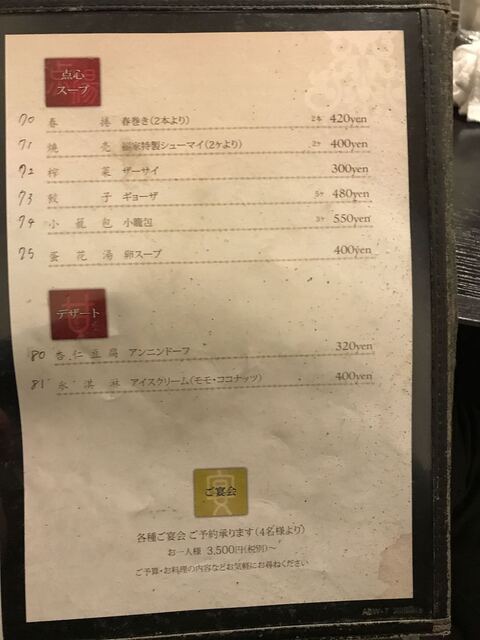 点心
スープ
70 春捲 春巻き(2本より) 2本 420yen
71 焼売 福家特製シューマイ(2ヶより) 2ヶ 400yen
72 搾菜 ザーサイ 300yen
73 餃子 ギョーザ 5ヶ 480yen
74 小籠包 小籠包 3ヶ 550yen
75 蛋花湯 卵スープ 400yen
デザート
80 杏仁豆腐 アンニンドーフ 320yen
81 氷淇淋 アイスクリーム(モモ・ココナッツ) 400yen
宴
ご宴会
各種ご宴会 ご予約承ります(4名様より)
お一人様 3,500円(税別)〜
ご予算・お料理の内容などお気軽にお尋ねください